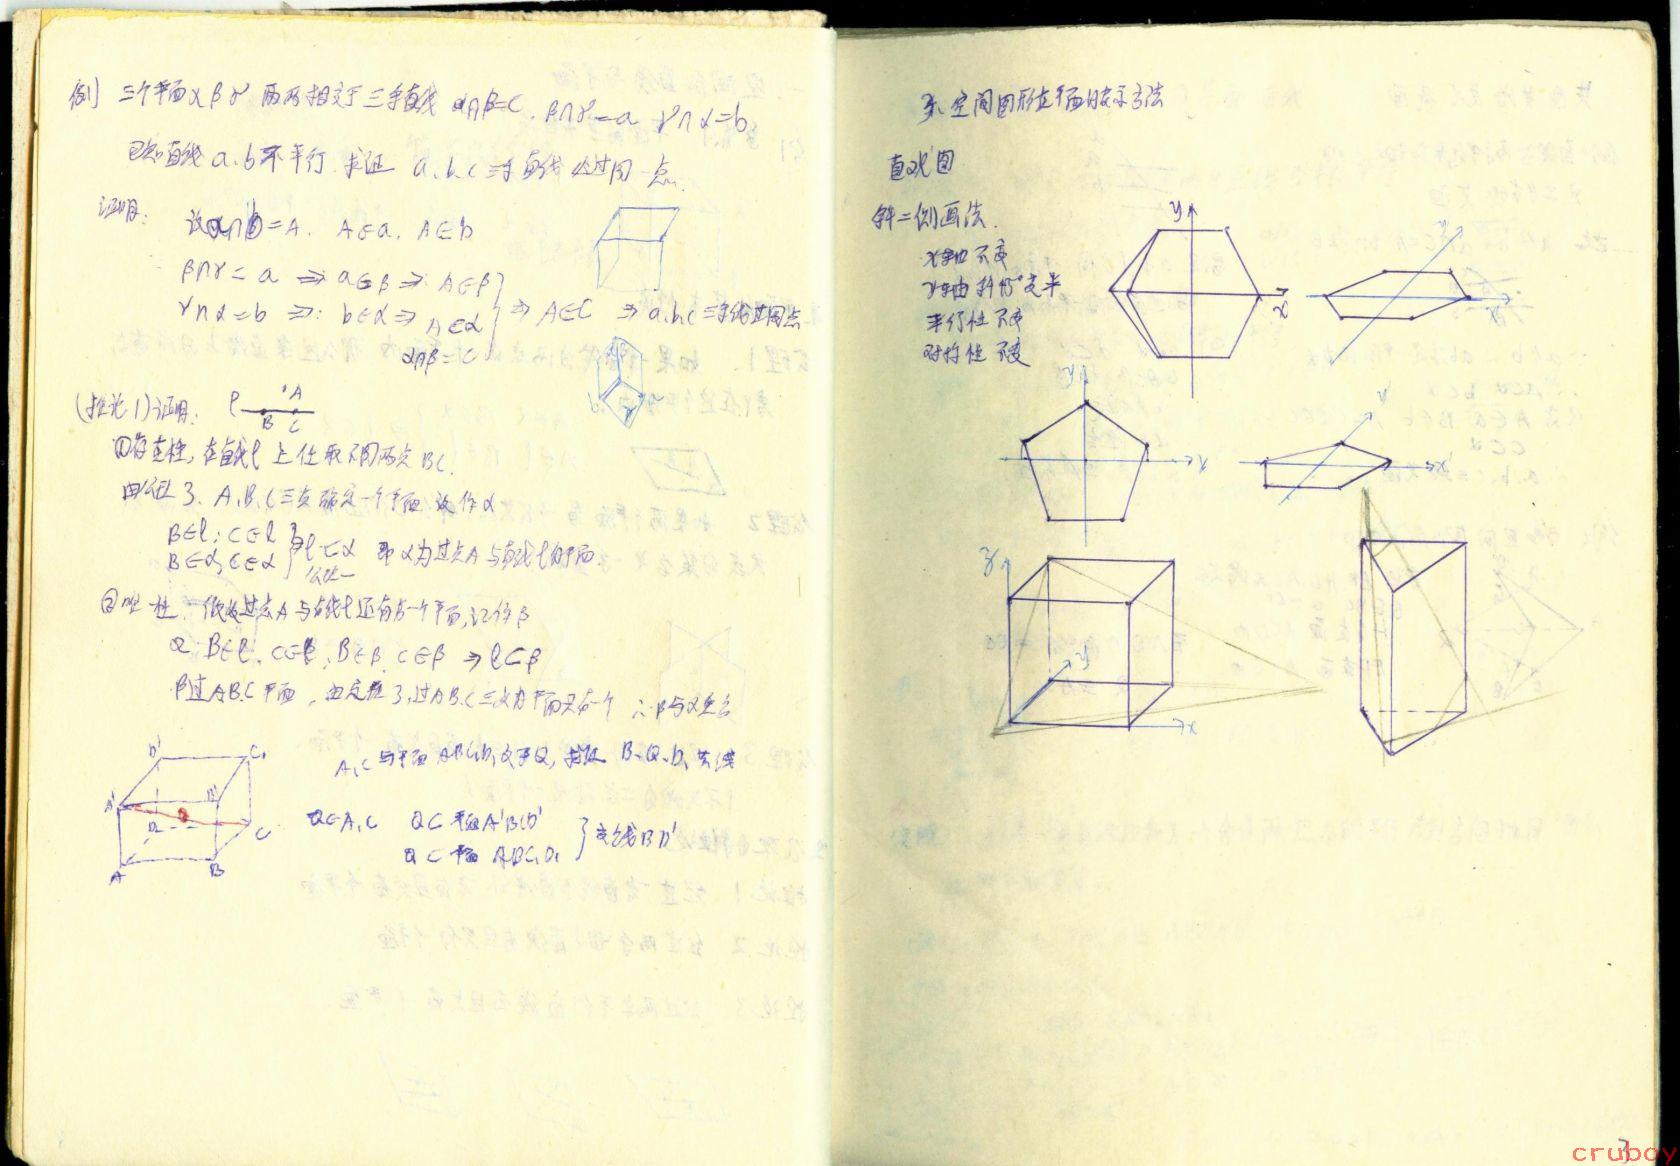 例1 三个平面α β γ 两两相交于三条直线 α∩β=C. β∩γ=a γ∩α=b
已知直线a.b不平行. 求证 a.b.c三条直线必过同一点.
证明: 设a∩b=A. A∈a. A∈b
β∩γ=a ⇒ a∈β ⇒ A∈β
γ∩α=b ⇒ b∈α ⇒ A∈α
α∩β=C
} ⇒ A∈C ⇒ a.b.c三条线过同点
(推论1)证明: ℓ A B C
①存在性, 在直线ℓ上任取不同两点BC.
由公理3. A.B.C三点确定一个平面 设作α
B∈ℓ; C∈ℓ
B∈α, C∈α } ℓ⊂α 即α为过点A与直线ℓ的平面.
公理一
②唯一性. 假设过点A与直线ℓ还有另一个平面, 记作β
B∈ℓ. C∈ℓ, B∈β. C∈β ⇒ ℓ⊂β
β过A.B.C平面, 由定理3, 过A.B.C三点的平面只有一个 ∴β与α重合
D' C₁ A' B' Q D C A B
A₁C与平面ABC₁D₁交于Q, 求证 B.Q.D₁共线
Q∈A₁C Q⊂平面A'BCD'
Q⊂平面ABC₁D₁ } 交线BD'
3. 空间图形在平面的表示方法
直观图
斜二侧画法.
x轴不变
y轴斜45°变半
平行性不变
对称性不变
y x
y x
y x
x'
z y x
3
cruboy